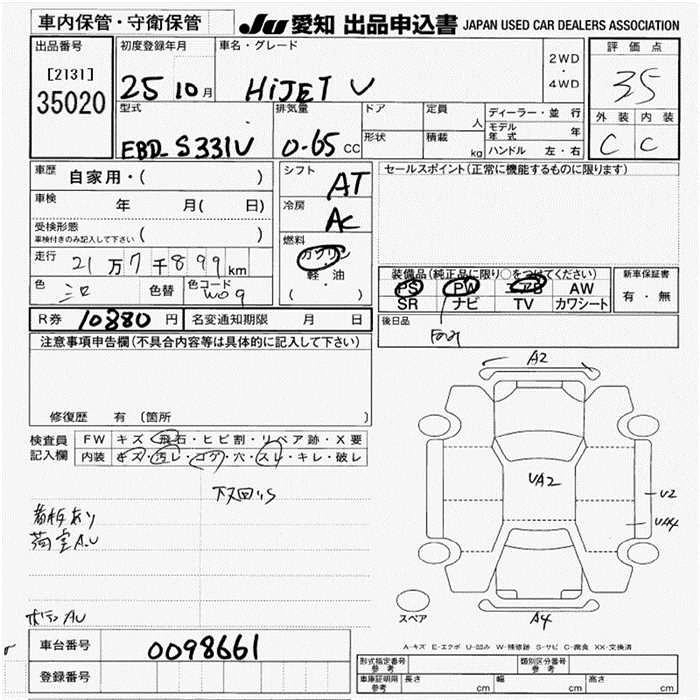 車内保管・守衛保管
JU 愛知 出品申込書 JAPAN USED CAR DEALERS ASSOCIATION
出品番号
[2131]
35020
初度登録年月
25 10 月
車名・グレード
HiJET V
2WD
・
4WD
評価点
35
外装 内装
C C
型式
EBD-S331V
排気量
0.65 CC
ドア
形状
定員
人
積載
kg
ディーラー・並行
モデル年式 年
ハンドル 左・右
車歴 自家用・( )
車検 年 月( 日)
受検形態
車検付きのみ記入して下さい ( )
走行 21万7千899 km
色 シロ 色替 色コード W09
シフト AT
冷房 AC
燃料
ガソリン
・
軽・油
( )
セールスポイント(正常に機能するものに限ります)
装備品(純正品に限り○をつけてください)
PS PW エアB AW
SR ナビ TV カワシート
新車保証書
有・無
後日品
R券 10880 円 名変通知期限 月 日
注意事項申告欄(不具合内容等は具体的に記入して下さい)
修復歴 有 〔箇所 〕
検査員記入欄
FW キズ・飛石・ヒビ割・リペア跡・X要
内装 キズ・汚レ・コゲ・穴・スレ・キレ・破レ
看板あり
荷室AU
A2
UA2
U2
UA4
A4
スペア
A-キズ E-エクボ U-凹み W-補修跡 S-サビ C-腐食 XX-交換済
車台番号 0098661
登録番号
形式指定番号 参考
類別区分番号 参考
車庫証明用 参考 長さ cm 幅 cm 高さ cm